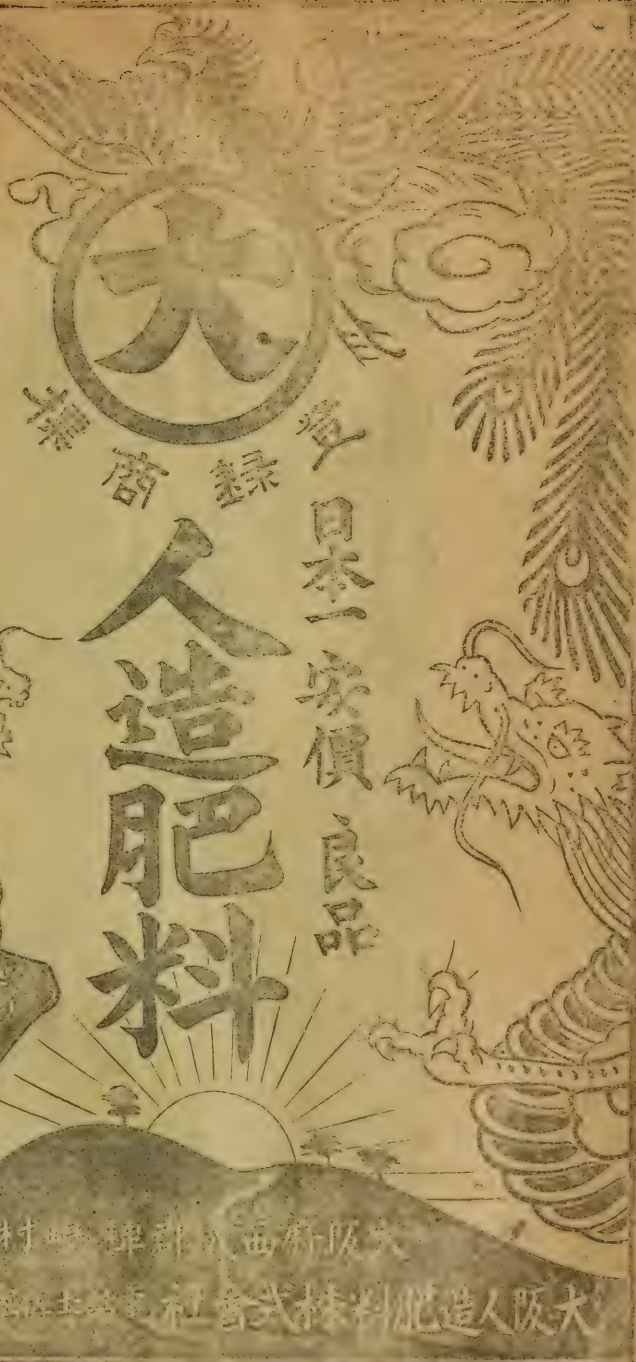 大
登録商標
日本一 安價 良品
人造肥料
大阪府西成郡 村
大阪人造肥料株式會社